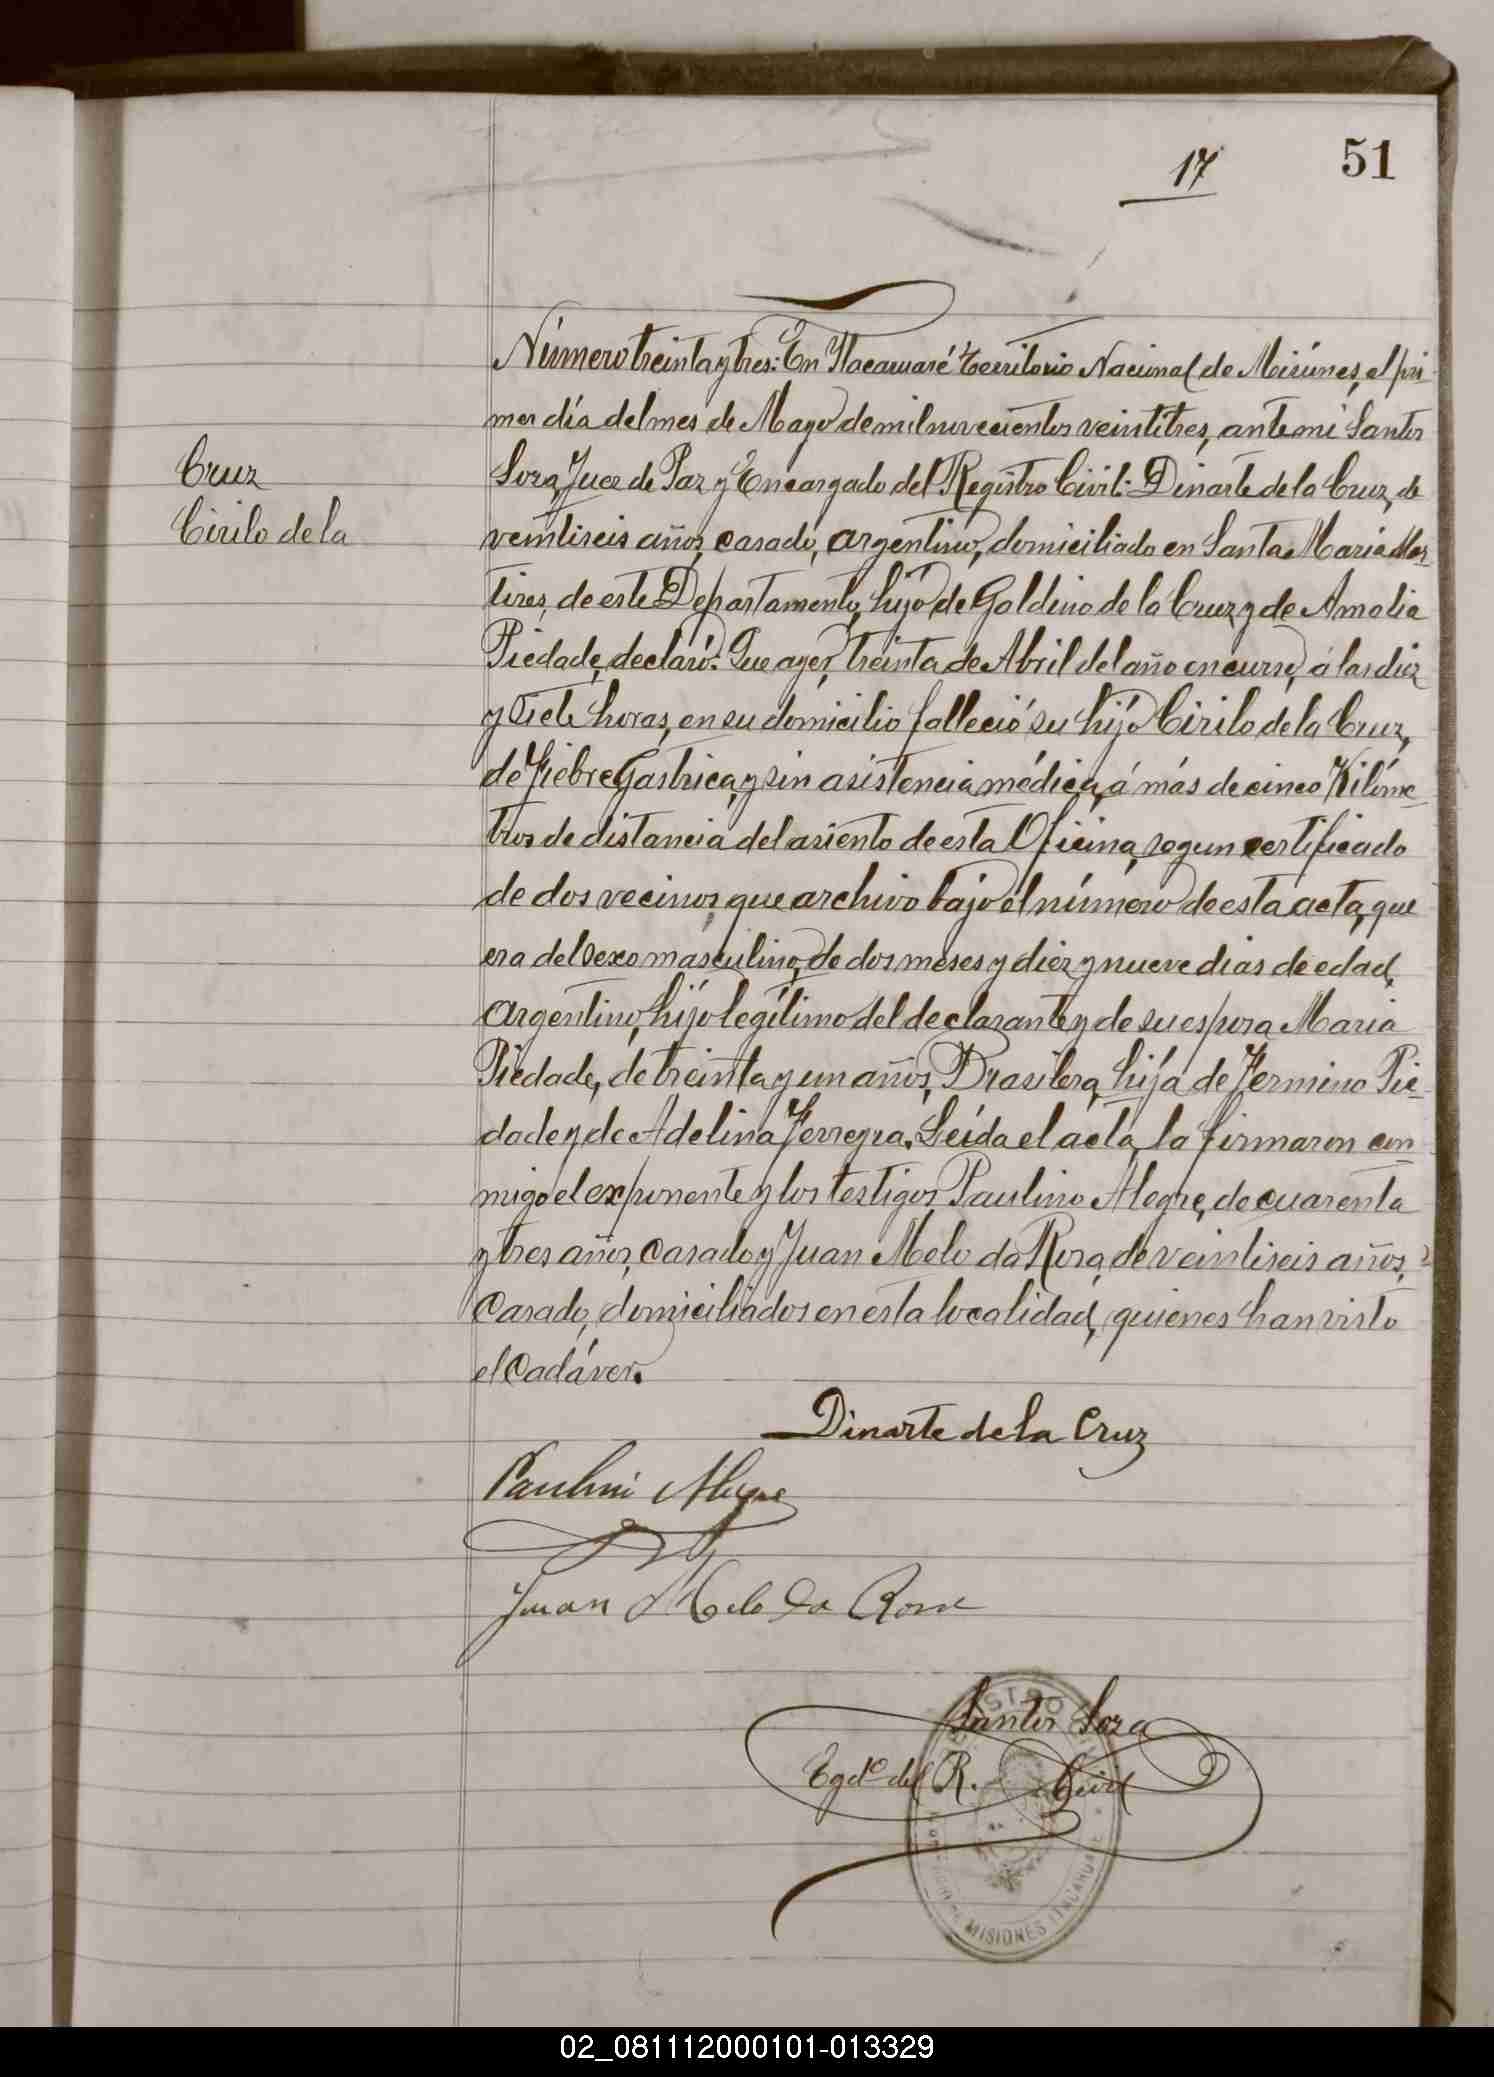 51
17
Cruz
Cirilo de la
Número treinta y tres: En Itacaruaré Territorio Nacional de Misiones, el pri
mer día del mes de Mayo de mil novecientos veintitres, ante mi Santos
Soza, Juez de Paz y Encargado del Registro Civil: Dinarte de la Cruz, de
veintiseis años, casado, argentino, domiciliado en Santa Maria Mar
tires, de este Departamento, hijo de Goldino de la Cruz y de Amalia
Piedade, declaró: Que ayer, treinta de Abril del año en curso, á las diez
y siete horas, en su domicilio falleció su hijo Cirilo de la Cruz,
de Fiebre Gastrica, y sin asistencia médica, á más de cinco Kilóme
tros de distancia del asiento de esta Oficina, segun certificado
de dos vecinos, que archivo bajo el número de esta acta, que
era del sexo masculino, de dos meses y diez y nueve dias de edad,
Argentino, hijo legítimo del declarante y de su esposa Maria
Piedade, de treinta y un años, Brasilera, hija de Fermino Pie
dade y de Adelina Ferreyra. Leída el acta, la firmaron con
migo el exponente y los testigos, Paulino Alegre, de cuarenta
y tres años, casado y Juan Melo da Rosa, de veintiseis años,
casado, domiciliados en esta localidad, quienes han visto
el cadáver.
Dinarte de la Cruz
Paulino Alegre
Juan Melo Da Rosa
Santos Soza
Egdo del R. Civil
MISIONES
02_081112000101-013329